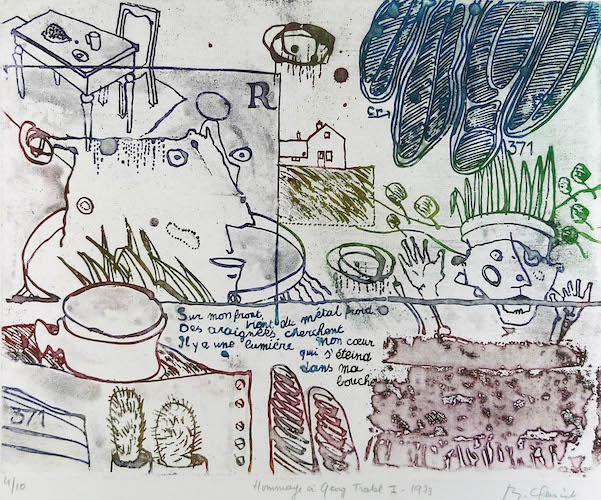 R
371
Sur mon front,
vient du métal froid.
Des araignées cherchent
mon cœur
Il y a une lumière
qui s'éteind
dans ma
bouche
371
4/10
Hommage à Georg Trakl I - 1973